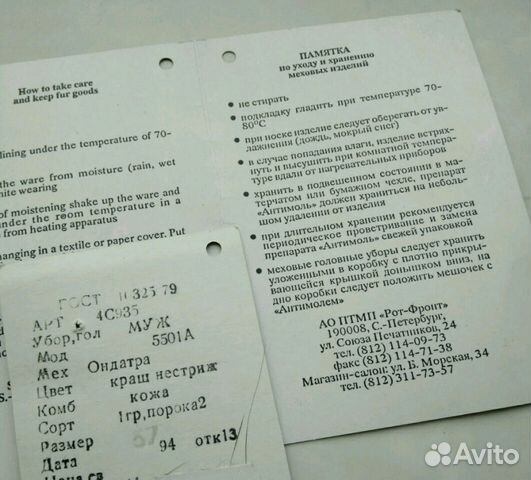 How to take care
and keep fur goods
lining under the temperature of 70-
the ware from moisture (rain, wet
hite wearing
of moistening shake up the ware and
under the room temperature in a
from heating apparatus
hanging in a textile or paper cover. Put
ПАМЯТКА
по уходу и хранению
меховых изделий
• не стирать
• подкладку гладить при температуре 70-
80°С
• при носке изделие следует оберегать от ув-
лажнения (дождь, мокрый снег)
• в случае попадания влаги, изделие встрях-
нуть и высушить при комнатной темпера-
туре вдали от нагревательных приборов
• хранить в подвешенном состоянии в ма-
терчатом или бумажном чехле, препарат
«Антимоль» должен храниться на неболь-
шом удалении от изделия
• при длительном хранении рекомендуется
периодическое проветривание и замена
препарата «Антимоль» свежей упаковкой
• меховые головные уборы следует хранить
уложенными в коробку с плотно прикры-
вающейся крышкой донышком вниз, на
дно коробки следует положить мешочек с
«Антимолем»
АО ПТМП «Рот-Фронт»
190008, С.-Петербург,
ул. Союза Печатников, 24
тел. (812) 114-09-73
факс (812) 114-71-38
Магазин-салон: ул. Б. Морская, 34
тел. (812) 311-73-57
ГОСТ 10325 79
АРТ 4С935
Убор,гол МУЖ
Мод 5501А
Мех Ондатра
Цвет краш нестриж
Комб кожа
Сорт 1гр,порока2
Размер 57
Дата 94 отк13
Цена св
Avito